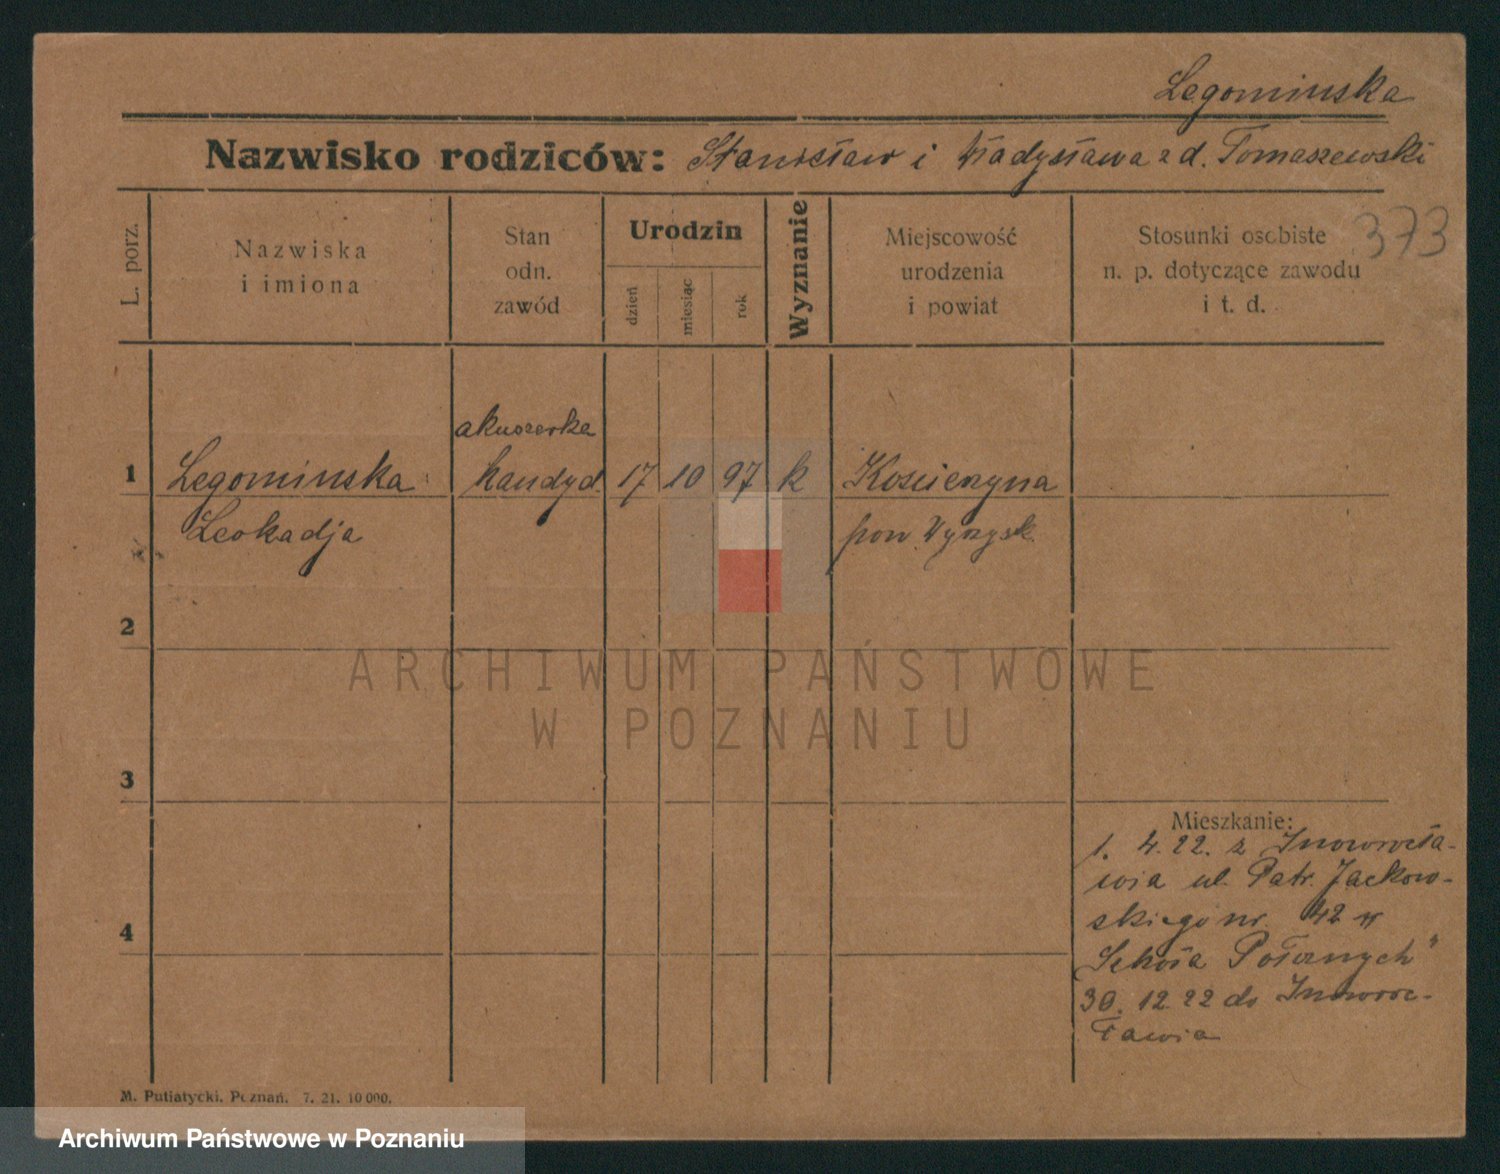 Legominska
Nazwisko rodziców: Stanisław i Władysława z d. Tomaszewski
373
L. porz.
Nazwiska
i imiona
Stan
odn.
zawód
Urodzin
dzień
miesiąc
rok
Wyznanie
Miejscowość
urodzenia
i powiat
Stosunki osobiste
n. p. dotyczące zawodu
i t. d.
akuszerka
1 Legominska kandyd. 17 10 97 k Kościerzyna
Leokadja pow. Wyrzysk.
2
ARCHIWUM PAŃSTWOWE
W POZNANIU
3
Mieszkanie:
1. 4. 22. z Inowrocła-
wia ul. Patr. Jackow-
skiego nr. 42 "
4
Szkoła Położnych"
30. 12 22 do Inowroc-
ławia
M. Putiatycki, Poznań. 7. 21. 10 000.
Archiwum Państwowe w Poznaniu